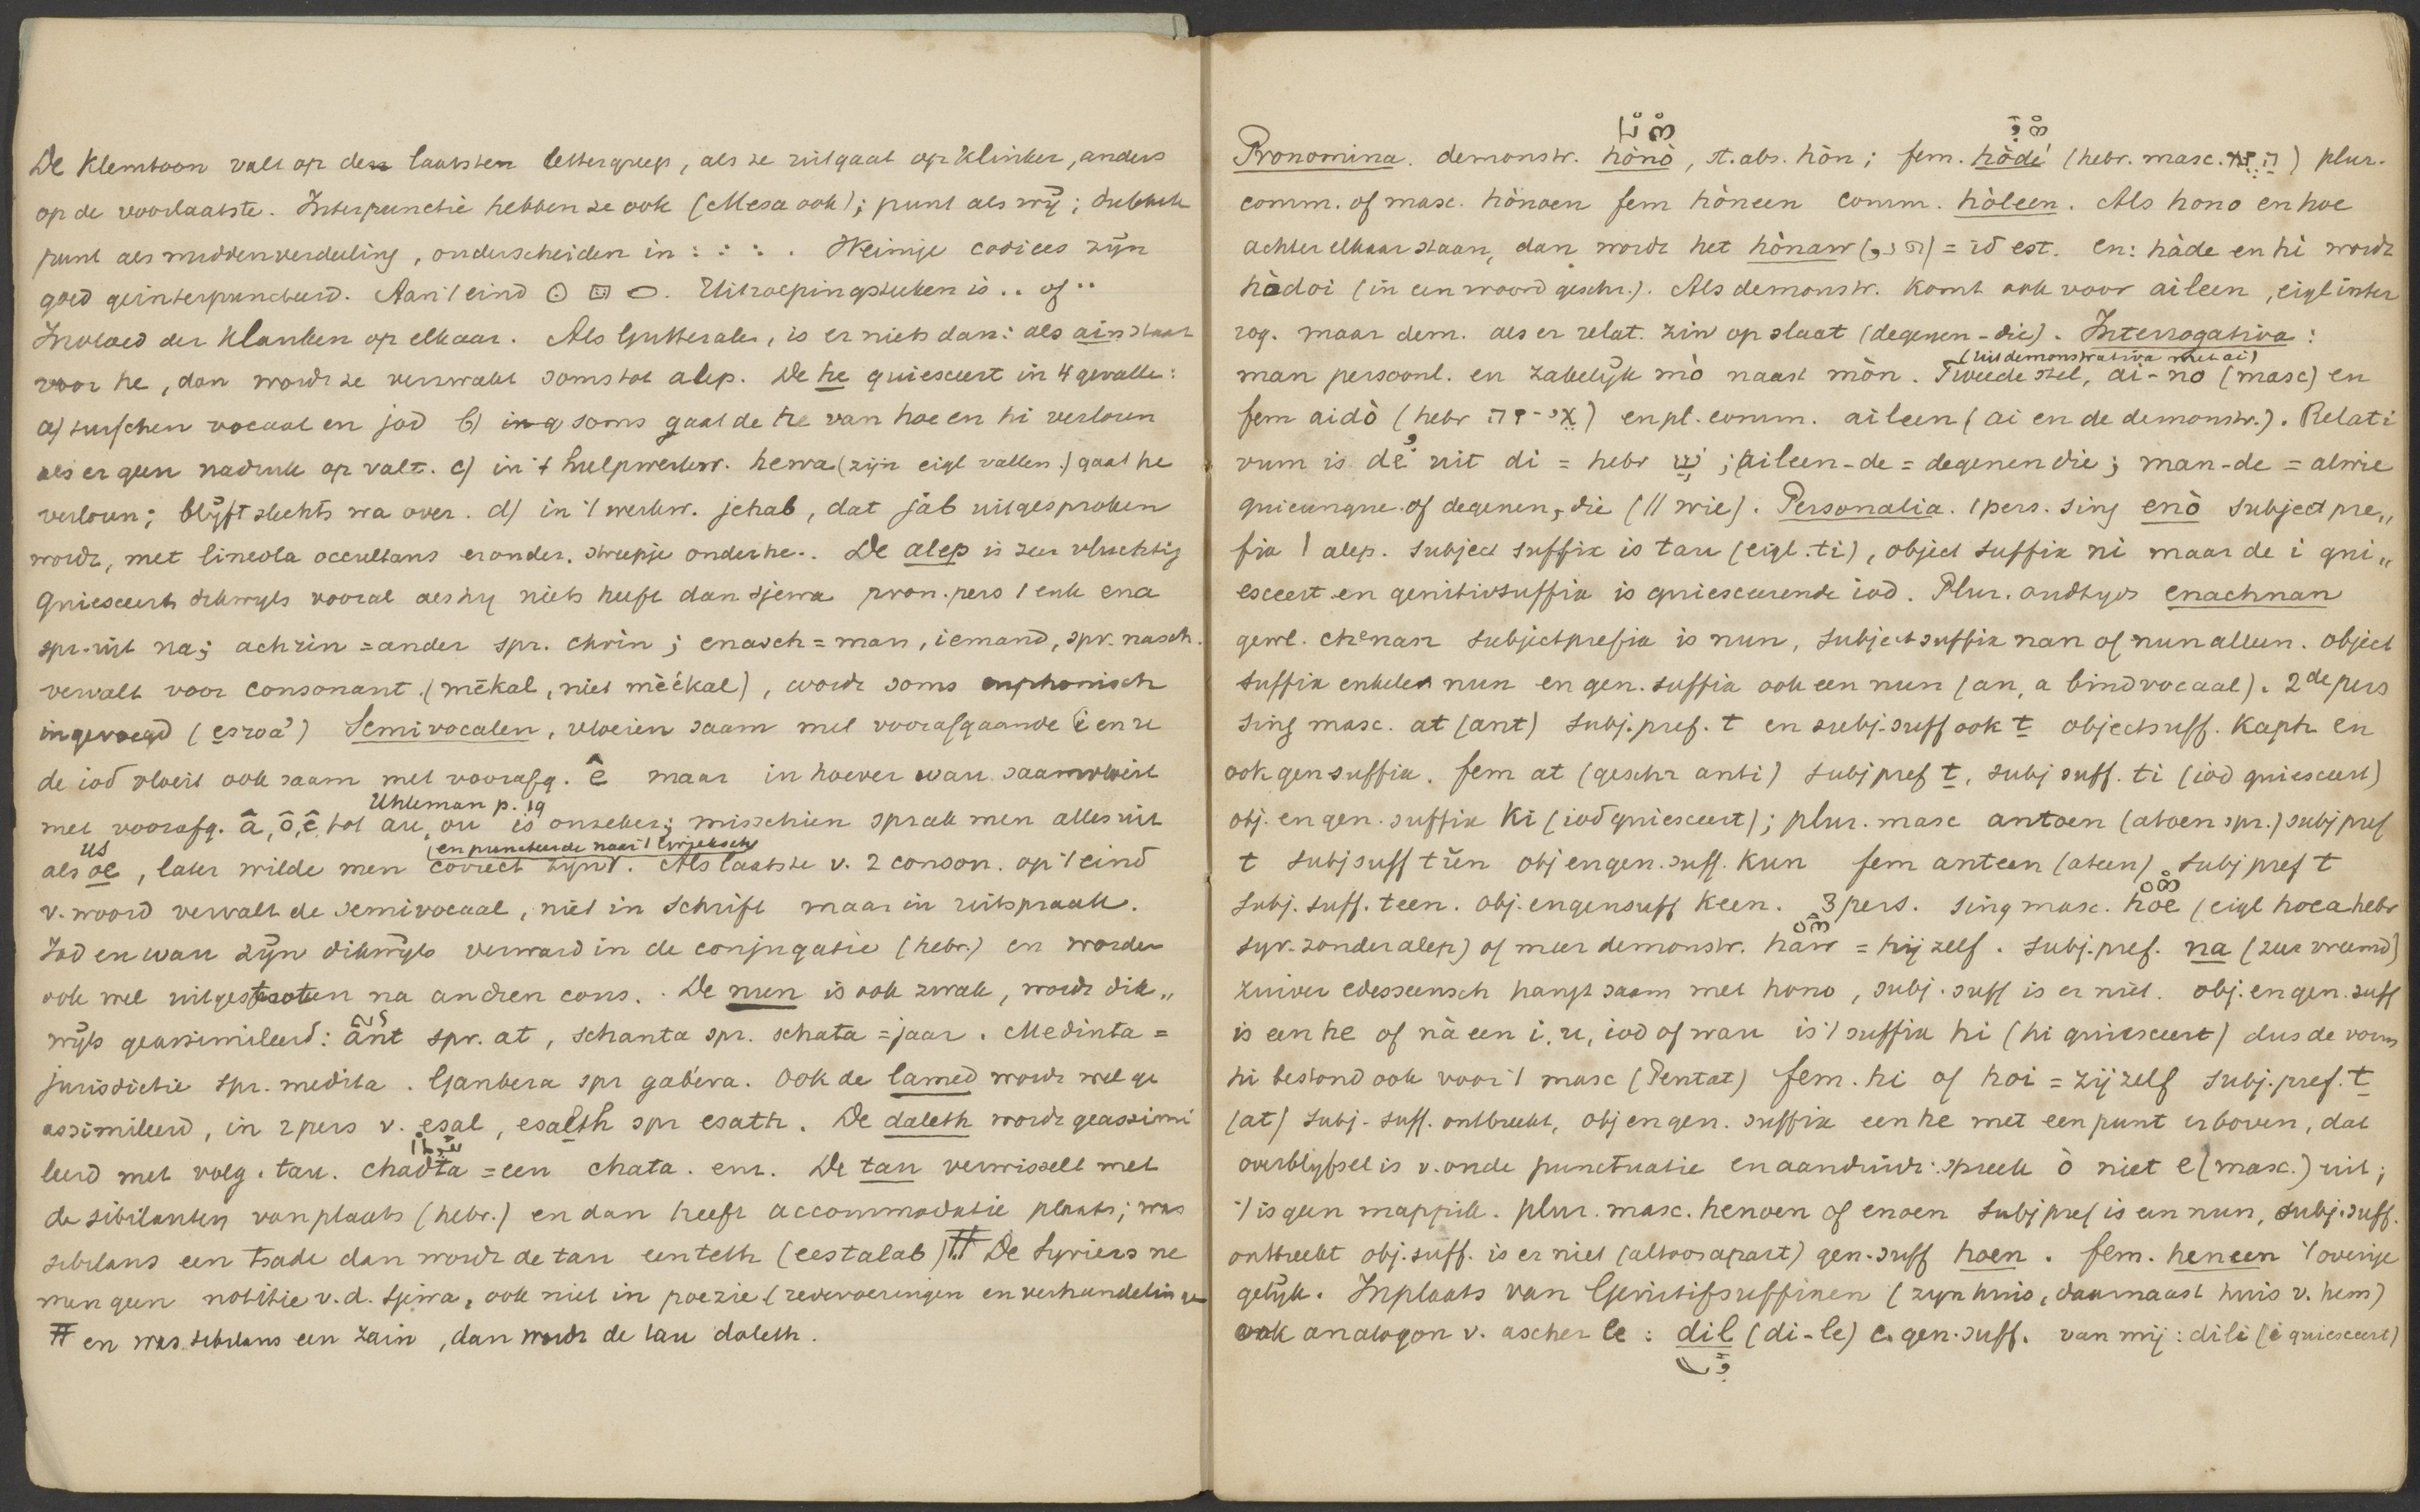 De klemtoon valt op den laatsten lettergreep, als ze uitgaat op klinker, anders
op de voorlaatste. Interpunctie hebben ze ook (Mesa ook); punt als wij; dubbele
punt als middenverdeeling, onderscheiden in : : : . Weinige codices zijn
goed geinterpuncteerd. Aan 't eind ⊙ ⊡ ⬭. Uitroepingsteken is .. of ··
Invloed der klanken op elkaar. Als Gutterales, is er niets dan: als ain staat
voor he, dan wordt ze verzwakt soms tot alep. De he quiesceert in 4 gevalle:
a) tusschen vocaal en jod b) in g soms gaat de he van hoe en hi verloren
als er geen nadruk op valt. c) in 't hulpwerkw. hewa (zijn eigl vallen.) gaat he
verloren; blijft slechts wa over. d) in 't werkw. jehab, dat jab uitgesproken
wordt, met lineola occultans eronder, streepje onder he.. De alep is zeer vluchtig
Quiesceert dikwyls vooral als hy niets heeft dan sjewa pron. pers 1 enk ena
spr. uit na; achrin = ander spr. chrin; enasch = man, iemand, spr. nasch.
vervalt voor consonant (mēkal, niet mèékal), wordt soms euphonisch
ingevoegd (esroa') Semivocalen, vloeien saam met voorafgaande i en u
de iod vloeit ook saam met voorafg. ê maar in hoever wau saamvloeit
Uhleman p. 19
met voorafg. â, ô, ê, tot au, ou is onzeker; misschien sprak men alles uit
us (en puncteerde naar 't Grieksch)
als oe, later wilde men correct zijn. Als laatste v. 2 conson. op 't eind
v. woord vervalt de semivocaal, niet in schrift maar in uitspraak.
Jod en wau zijn dikwijls verward in de conjugatie (hebr.) en worden
ook wel uitgestooten na andren cons.. De nun is ook zwak, wordt dik„
wijls geassimileerd: ânt spr. at, schanta spr. schata = jaar. Medinta =
jurisdictie spr. medita. Ganbera spr gabera. Ook de lamed wordt wel ge
assimileerd, in 2 pers v. esal, esalth spr esath. De daleth wordt geassimi
leerd met volg. tau. chadta = een chata. enz. De tau verwisselt met
de sibilanten van plaats (hebr.) en dan heeft accommodatie plaats; was
sibilans een tsade dan wordt de tau een teth (eestalab) # De Syriers ne
men geen notitie v.d. sjewa, ook niet in poezie (redevoeringen en verhandelingen
# en was sibilans een zain, dan wordt de tau daleth.
Pronomina. demonstr. hònò, st. abs. hòn; fem. hòdé (hebr. masc. זה) plur.
comm. of masc. hònoen fem hòneen comm. hòleen. Als hono en hoe
achter elkaar staan, dan wordt het hònaw = id est. en: hàde en hi wordt
hòdoi (in een woord geschr.). Als demonstr. komt ook voor aileen, eigl inter
rog. maar dem. als er relat. zin op slaat (degenen - die). Interrogativa:
(uit demonstrativa met ai)
man persoonl. en zakelijk mò naast mòn. Tweede stel, ai-no (masc) en
fem aidò (hebr אי-זה) en pl. comm. aileen (ai en de demonstr.). Relati
vum is dĕ uit di = hebr ש; aileen-de = degenen die; man-de = alwie
quicunque of degenen, die (// wie). Personalia. 1 pers. sing enò subject pre„
fix 1 alep. subject suffix is tau (eigl. ti), object suffix ni maar de i qui„
esceert en genitivsuffix is quiesceerende iod. Plur. oudtyds enachnan
gewl. chenan subjectprefix is nun, subjectsuffix nan of nun alleen. object
suffix enkele nun en gen. suffix ook een nun (an, a bindvocaal). 2de pers
sing masc. at (ant) subj. pref. t en subj. suff ook t objectsuff. Kaph en
ook gensuffix. fem at (geschr anti) subj pref t, subj suff. ti (iod quiesceert)
obj. en gen. suffix Ki (iod quiesceert); plur. masc antoen (atoen spr.) subj pref
t subj suff tŭn obj en gen. suff. Kun fem anteen (ateen) subj pref t
subj. suff. teen. obj. en gensuff Keen. 3 pers. sing masc. hoe (eigl hoea hebr
syr. zonder alep) of meer demonstr. haw = hij zelf. subj. pref. na (zeer vreemd)
zuiver edesseensch hangt saam met hono, subj. suff is er niet. obj. en gen. suff
is een he of nà een i, u, iod of wau is 't suffix hi (hi quiesceert) dus de vorm
hi bestond ook voor 't masc (Pentat) fem. hi of hoi = zij zelf subj. pref. t
(at) subj. suff. ontbreekt, obj en gen. suffix een he met een punt erboven, dat
overblijfsel is v. oude punctuatie en aanduidt: spreek ò niet e (masc.) uit;
't is geen mappik. plur. masc. henoen of enoen subj pref is een nun, subj. suff.
ontbreekt obj. suff. is er niet (altoos apart) gen. suff hoen. fem. heneen 't overige
gelijk. Inplaats van Genitifsuffixen (zyn huis, daarnaast huis v. hem)
ook analogon v. ascher le: dil (di-le) c. gen. suff. van mij: dili (i quiesceert)